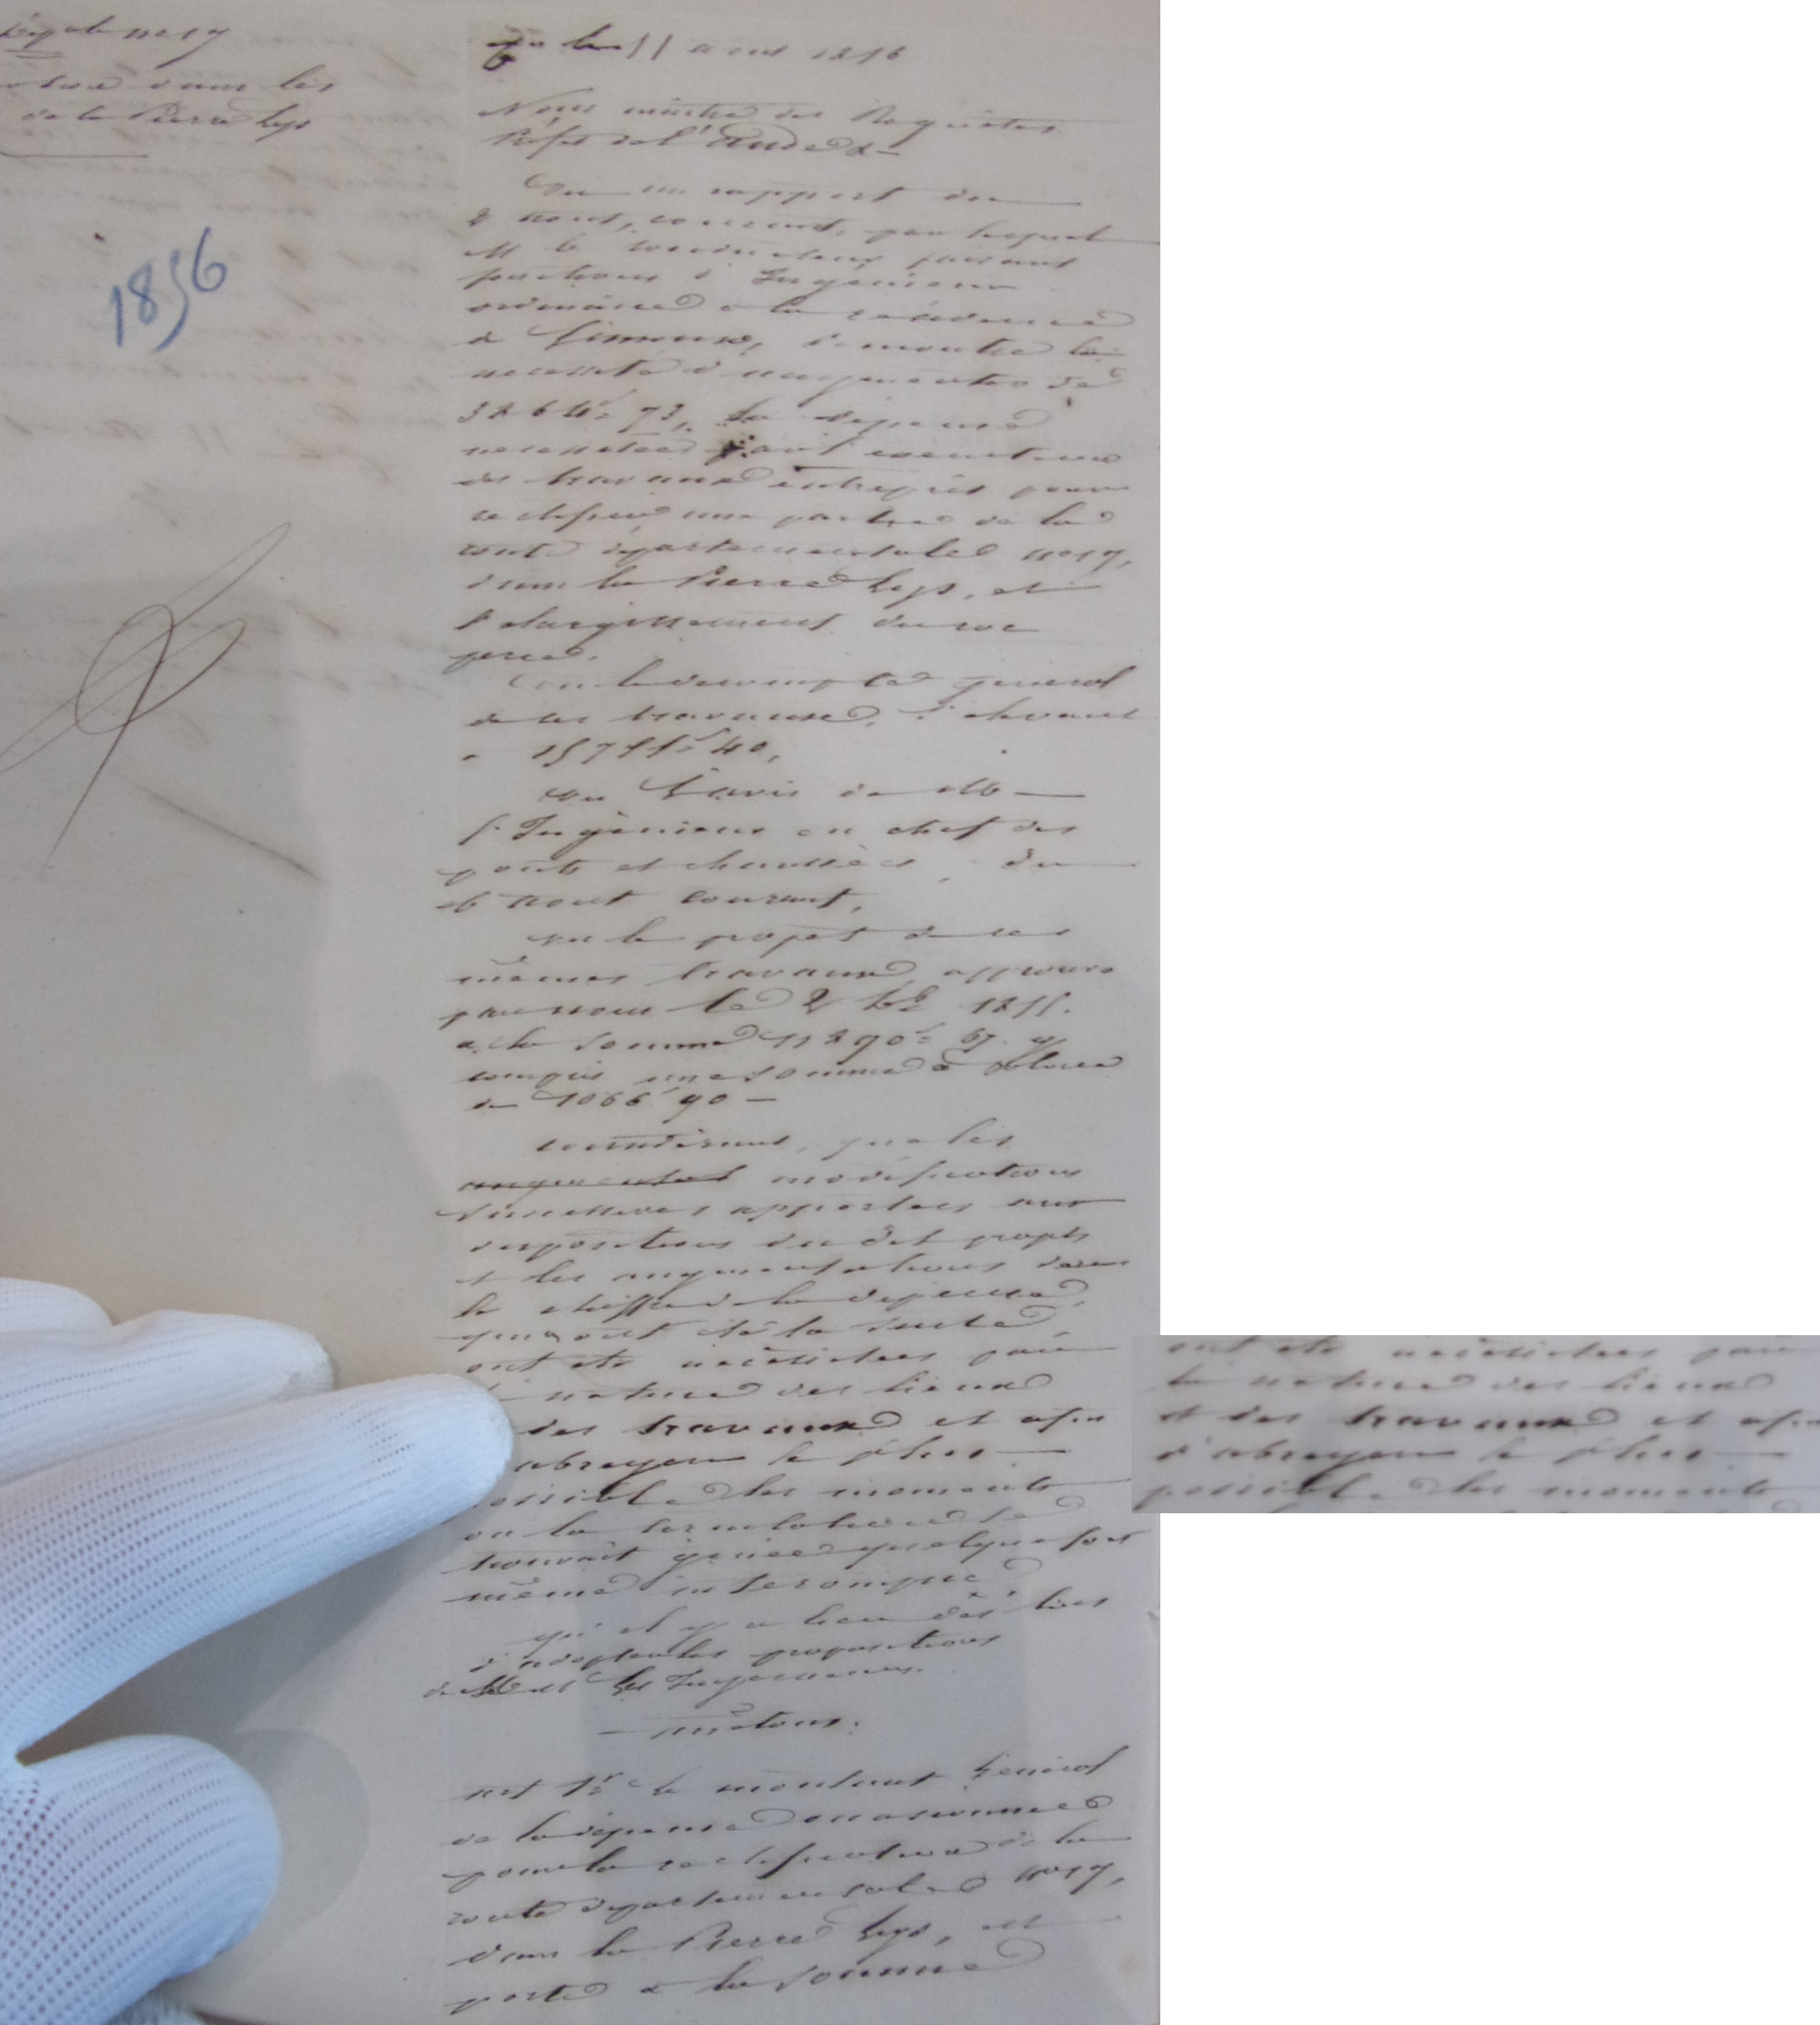 dép ale no 19
dans les
de la Pierre Lys
1856
Du 11 aout 1856
Nous maitre des Requêtes
Préfet de l'Aude &
Vu un rapport du
2 aout, courant, par lequel
M le conducteur faisant
fonctions d'Ingénieur
ordinaire à la résidence
de Limoux, démontre la
necessité d'augmenter de
73, la dépense
necessitée par l'execution
des travaux entrepris pour
rectifier une partie de la
route départementale no 19,
dans la Pierre Lys, et
l'elargissement du roc
percé.
Vu le decompte général
de ces travaux, s'elevant
a 15755f 40,
Vu l'avis de M
l'Ingénieur en chef des
ponts et chaussées, du
6 aout courant,
Vu le projet de ces
mêmes travaux, approuvé
par nous le 2 1855.
a la somme 11290f 67. y
compris une somme à valoir
de 1066f 90 —
considerant, que les
augmentat modifications
successives apportées aux
dispositions du dit projet
et les augmentations dans
le chiffre de la depense,
qui ont été la suite,
ont été nécessitées par
la nature des lieux
et des travaux et afin
d'abreger le plus
possible les moments
ou la circulation se
trouvait génée quelquefois
même interrompue
qu'il y a lieu dès lors
d'adopter les propositions
de MM les Ingenieurs.
— arrêtons:
art 1er le montant Général
de la dépense occasionnée
pour la rectification de la
route départementale no 19,
dans la Pierre Lys, est
porté a la somme
ont été nécessitées par
la nature des lieux
et des travaux et afin
d'abreger le plus
possible les moments